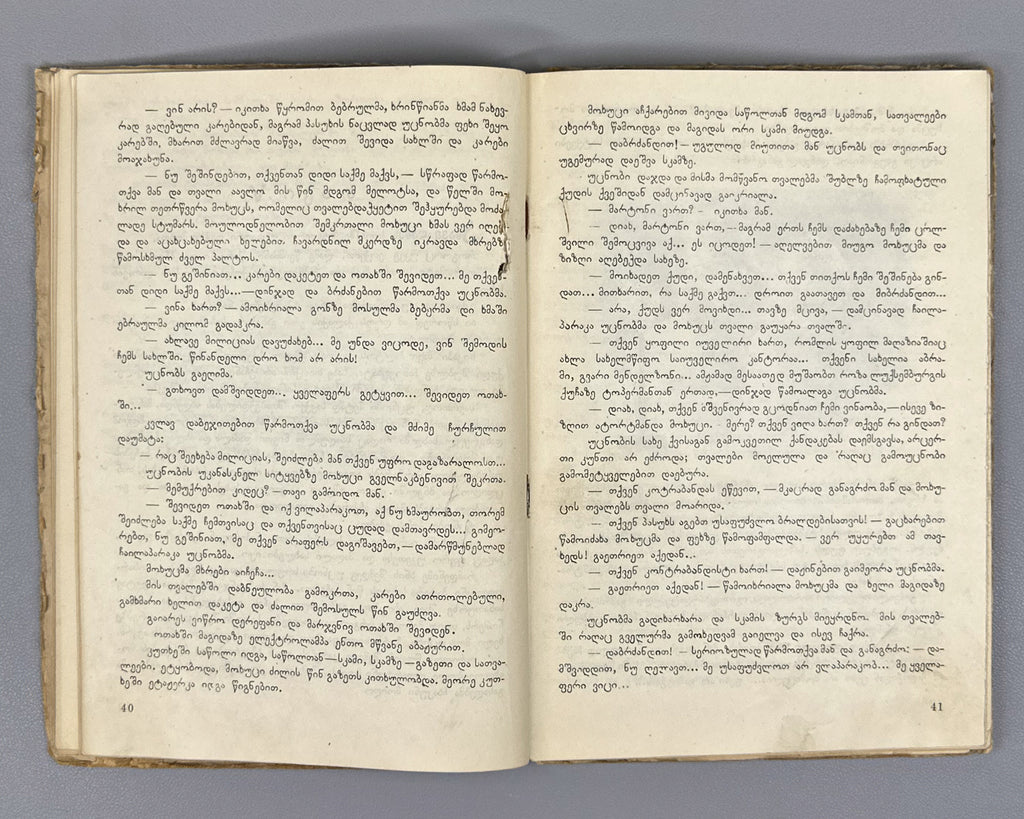 — ვინ არის? — იკითხა წყრომით ბებრულმა, ხრინწიანმა ხმამ ნახევ-
რად გაღებული კარებიდან, მაგრამ პასუხის ნაცვლად უცნობმა ფეხი შეყო
კარებში, მხარით მძლავრად მიაწვა, ძალით შევიდა სახლში და კარები
მოაჯახუნა.
— ნუ შეშინდებით, თქვენთან დიდი საქმე მაქვს, — სწრაფად წარმო-
თქვა მან და თვალი აავლო მის წინ მდგომ მელოტსა, და წელში მო-
ხრილ თეთრწვერა მოხუცს, რომელიც თვალებდაჭყეტით შეჰყურებდა მოძა-
ლადე სტუმარს. მოულოდნელობით შემკრთალი მოხუცი ხმას ვერ იღებ-
და და აცახცახებული ხელებით ჩავარდნილ მკერდზე იკრავდა მხრებზე
წამოსხმულ ძველ პალტოს.
— ნუ გეშინიათ... კარები დაკეტეთ და ოთახში შევიდეთ... მე თქვენ-
თან დიდი საქმე მაქვს...—დინჯად და ბრძანებით წარმოთქვა უცნობმა.
— ვინა ხართ? — ამოიხრიალა გონზე მოსულმა ბებერმა და ხმაში
ებრაულმა კილომ გადაჰკრა.
— ახლავე მილიციას დავუძახებ... მე უნდა ვიცოდე, ვინ შემოდის
ჩემს სახლში. წინანდელი დრო ხომ არ არის!
უცნობს გაეღიმა.
— გთხოვთ დამშვიდდეთ... ყველაფერს გეტყვით... შევიდეთ ოთახ-
ში...
კვლავ დაბეჯითებით წარმოთქვა უცნობმა და მძიმე ჩურჩულით
დაუმატა:
— რაც შეეხება მილიციას, შეიძლება მან თქვენ უფრო დაგაზარალოსთ...
უცნობის უკანასკნელ სიტყვებზე მოხუცი გველნაკბენივით შეკრთა.
— მემუქრებით კიდეც? — თავი გამოიდო მან.
— შევიდეთ ოთახში და იქ ვილაპარაკოთ, აქ ნუ ხმაურობთ, თორემ
შეიძლება საქმე ჩემთვისაც და თქვენთვისაც ცუდად დამთავრდეს... გიმეო-
რებთ, ნუ გეშინიათ, მე თქვენ არაფერს დაგიშავებთ, — დამარწმუნებლად
ჩაილაპარაკა უცნობმა.
მოხუცმა მხრები აიჩეჩა...
მის თვალებში დაბნეულობა გამოკრთა, კარები ათრთოლებული,
გამხმარი ხელით დაკეტა და ძალით შემოსულს წინ გაუძღვა.
გაიარეს ვიწრო დერეფანი და მარჯვნივ ოთახში შევიდენ.
ოთახში მაგიდაზე ელექტროლამპა ენთო მწვანე აბაჟურით.
კუთხეში საწოლი იდგა, საწოლთან—სკამი, სკამზე — გაზეთი და სათვა-
ლეები. ეტყობოდა, მოხუცი ძილის წინ გაზეთს კითხულობდა. მეორე კუთ-
ხეში ეტაჟერკა იდგა წიგნებით.
40
მოხუცი აჩქარებით მივიდა საწოლთან მდგომ სკამთან, სათვალეები
ცხვირზე წამოიდგა და მაგიდას ორი სკამი მიუდგა.
— დაბრძანდით! — უგულოდ მიუთითა მან უცნობს და თვითონაც
უგემურად დაეშვა სკამზე.
უცნობი დაჯდა და მისმა მომწვანო თვალებმა შუბლზე ჩამოფხატული
ქუდის ქვეშიდან დამცინავად გაიკრიალა.
— მარტონი ვართ? - იკითხა მან.
— დიახ, მარტონი ვართ, — მაგრამ ერთს ჩემს დაძახებაზე ჩემი ცოლ-
შვილი შემოცვივა აქ... ეს იცოდეთ! — აღელვებით მიუგო მოხუცმა და
ზიზღი აღებეჭდა სახეზე.
— მოიხადეთ ქუდი, დამენახვეთ... თქვენ თითქოს ჩემი შეშინება გინ-
დათ... მითხარით, რა საქმე გაქვთ... დროით გაათავეთ და მიბრძანდით...
— არა, ქუდს ვერ მოვიხდი... თავზე მცივა, — დამცინავად ჩაილა-
პარაკა უცნობმა და მოხუცს თვალი გაუყარა თვალში.
— თქვენ ყოფილი იუველირი ხართ, რომლის ყოფილ მაღაზიაშიაც
ახლა სახელმწიფო საიუველირო კანტორაა... თქვენი სახელია აბრა-
მი, გვარი მენდელზონი... ამჟამად მესაათედ მუშაობთ როზა ლუქსემბურგის
ქუჩაზე ტობერმანთან ერთად,—დინჯად წამოალაგა უცნობმა.
— დიახ, დიახ, თქვენ მშვენივრად გცოდნიათ ჩემი ვინაობა,—ისევე ზი-
ზღით ატორტმანდა მოხუცი. - მერე? თქვენ ვიღა ხართ? თქვენ რა გინდათ?
უცნობის სახე ქვისაგან გამოკვეთილ ქანდაკებას დაემსგავსა, არცერ-
თი კუნთი არ ეძროდა; თვალები მოელულა და რაღაც გამოუცნობი
გამომეტყველებით დაებურა.
— თქვენ კოტრაბანდას ეწევით, — მკაცრად განაგრძო მან და მოხუ-
ცის თვალებს თვალი მოარიდა.
— თქვენ პასუხს აგებთ უსაფუძვლო ბრალდებისათვის! — გაცხარებით
წამოიძახა მოხუცმა და ფეხზე წამოფამფალდა. — ვერ უყურებთ ამ თავ-
ხედს! გაეთრიეთ აქედან...
— თქვენ კონტრაბანდისტი ხართ! — დაჟინებით გაიმეორა უცნობმა.
— გაეთრიეთ აქედან! — წამოიხრიალა მოხუცმა და ხელი მაგიდაზე
დაკრა.
უცნობმა გადიხარხარა და სკამის ზურგს მიეყრდნო. მის თვალებ-
ში რაღაც გველურმა გამოხედვამ გაიელვა და ისევ ჩაქრა.
— დაბრძანდით! — სერიოზულად წარმოთქვა მან და განაგრძო: — და-
მშვიდდით, ნუ ღელავთ... მე უსაფუძვლოთ არ ვლაპარაკობ... მე ყველა-
ფერი ვიცი...
41